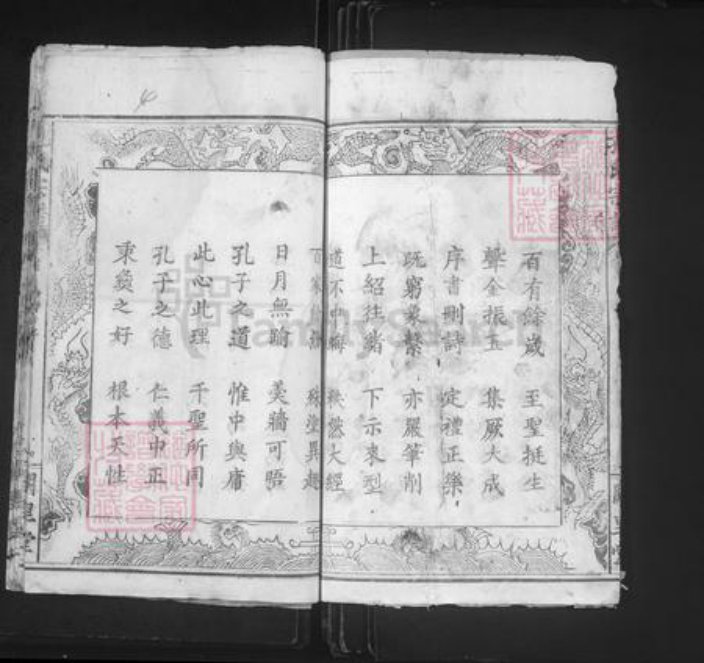 百有餘歲 至聖挺生
聲金振玉 集厥大成
序書刪詩 定禮正樂
既窮象繫 亦嚴筆削
上紹往緒 下示來型
道不中晦 秩然大經
百家 殊塗異趣
日月無踰 羹牆可晤
孔子之道 惟中與庸
此心此理 千聖所同
孔子之德 仁義中正
秉彝之好 根本天性
FamilySearch